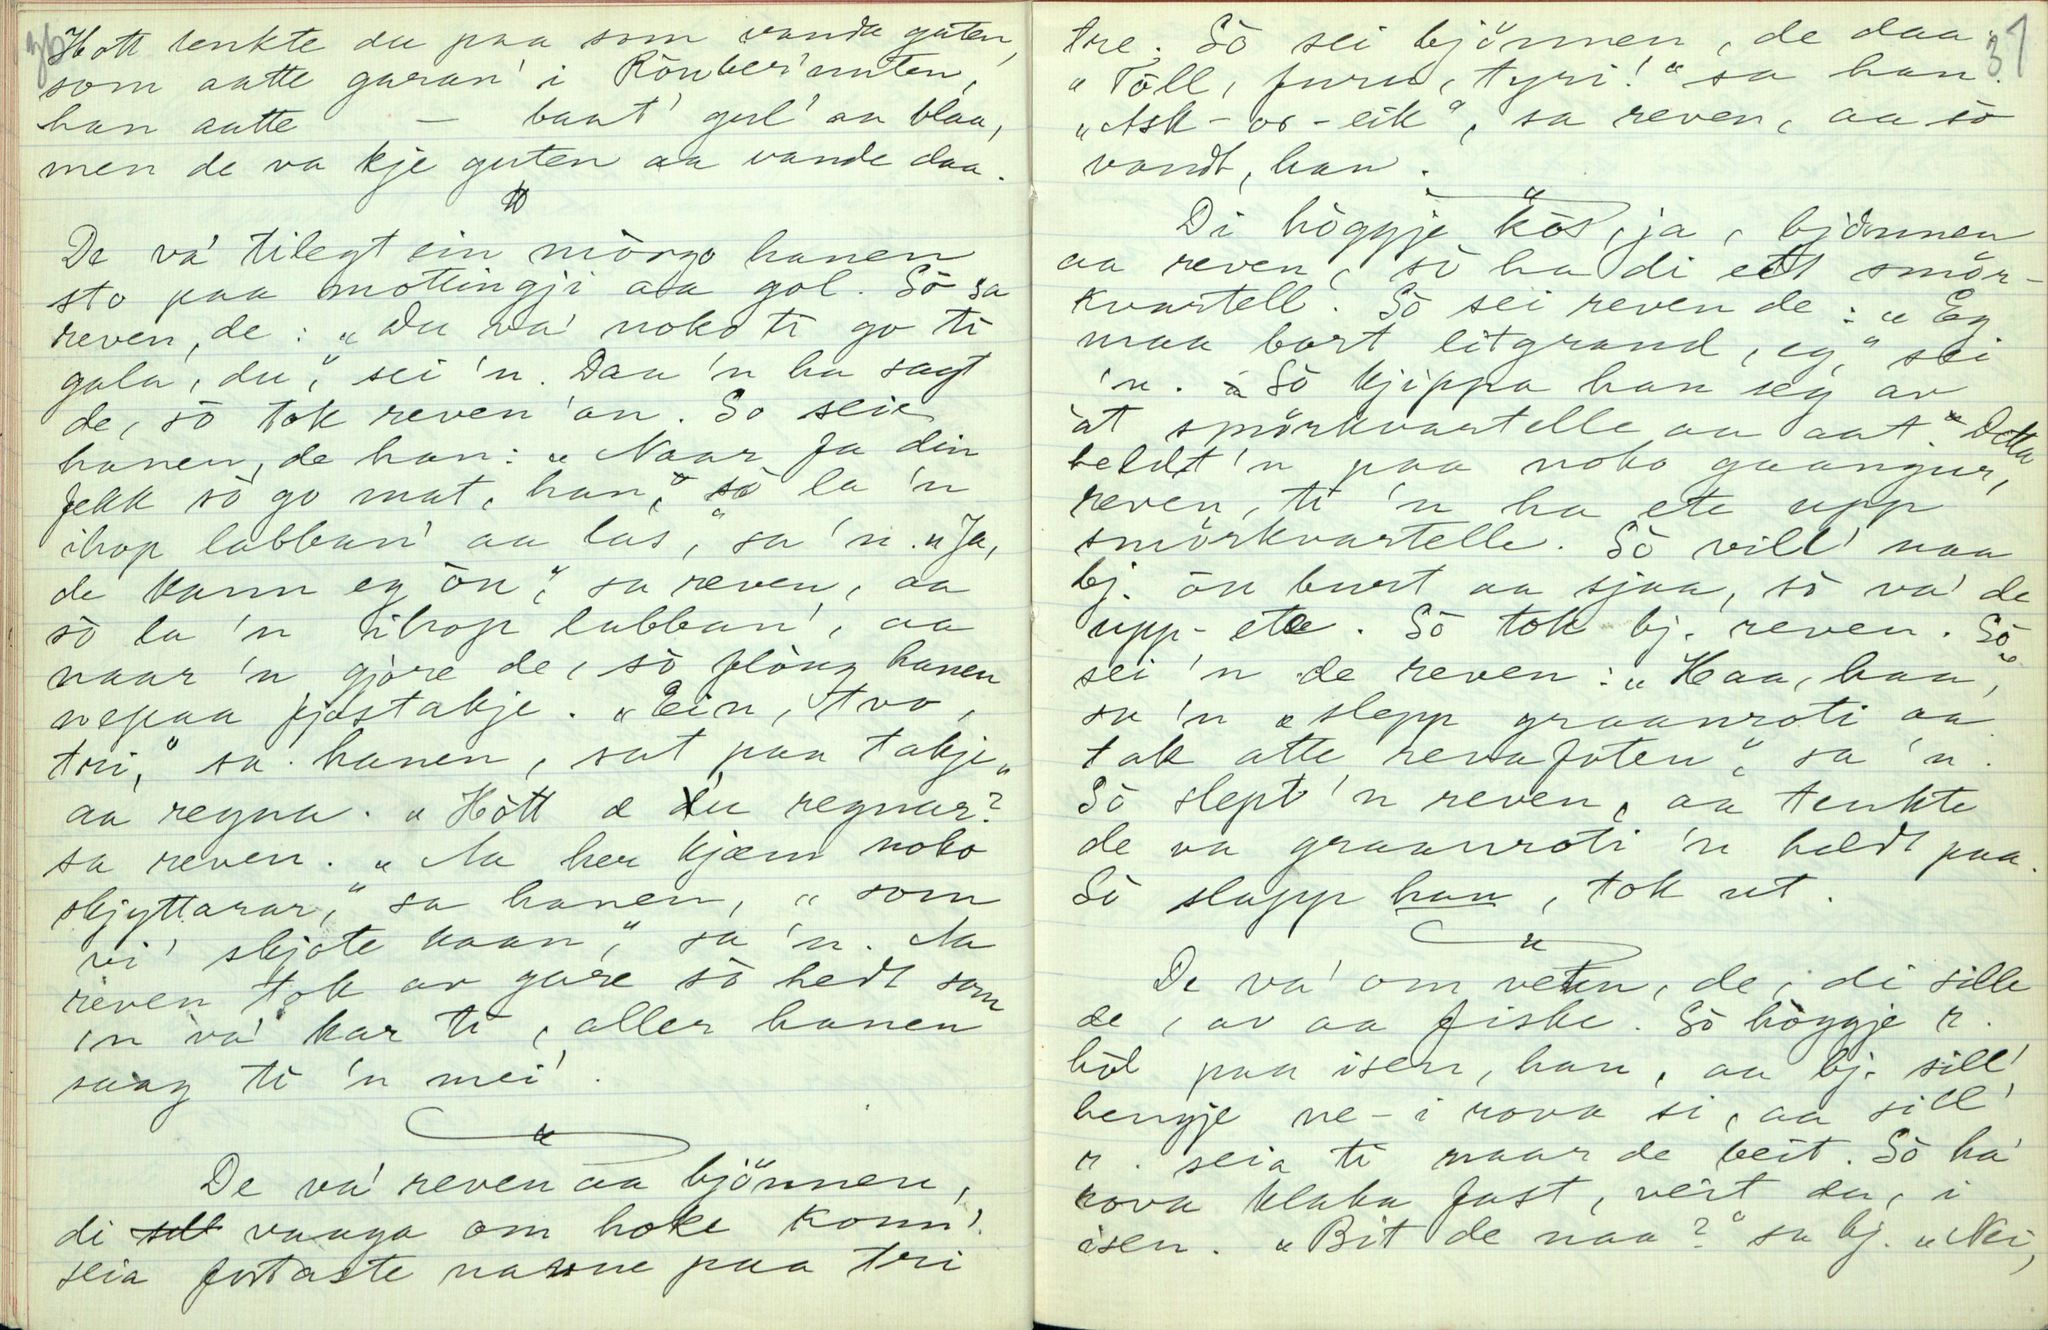 Hott tenkte du paa som vande guten,
som aatte garan' i Rönber'nuten,
han aatte — baat' gul' aa blaa,
men de va kje guten aa vande daa.
De va' tilegt ein mòrgo hanen
sto paa mottingji aa gol. Sò sa
reven, de: „Du va' noko ti go ti
gala, du," sei 'n. Daa 'n ha sagt
de, sò tok reven 'an. So seie
hanen, de han: „Naar fa din
fekk sò go mat, han, sò la 'n
ihop labban' aa las," sa 'n. „Ja,
de kann eg òn," sa reven, aa
sò la 'n ihop labban', aa
naar 'n gjore de, sò flòug hanen
uppaa fjostakje. „Ein, tvo,
tri," sa hanen, sat paa takje
aa regna. „Hòtt æ du regnar?"
sa reven. „Aa her kjæm noko
skjyttarar," sa hanen, „som
vi' skjote kaan," sa 'n. Aa
reven tok av gare sò hedt som
'n va' kar ti, aller hanen
saag ti 'n mei'.
De va' reven aa bjönnen,
di vaaga om hoke konn'
seia fortaste nasne paa tri
31
tre. Sò sei bjönnen, de daa.
„Töll, furu, tyri!" sa han.
„Ask-or-eik", sa reven, aa sò
vandt, han.
Di höggje kös, ja, bjönnen
aa reven, sò ha di ett smör-
kvartell. Sò sei reven de: „Eg
maa bort litgrand, eg," sei
'n. Sò kjippa han seg av
at smörkvartelle aa aat. Detta
heldt 'n paa noko gaangur,
reven, ti 'n ha ete upp
smörkvartelle. Sò vill' naa
bj. òn burt aa sjaa, sò va' de
upp-ete. Sò tok bj. reven. Sò
sei 'n de reven: „Haa, haa,"
sa 'n „slepp graanroti aa
tak atte revafoten", sa 'n.
Sò slept 'n reven, aa tenkte
de va graanroti 'n heldt paa.
Sò slapp han, tok ut.
De va' om vetun, de, di sille
de, av aa fiske. Sò höggje r.
hòl paa isen, han, aa bj. sill'
hengje ne-i rova si, aa sill'
r. seia ti naar de beit. Sò ha'
rova klaka fast, veit du, i
isen. „Bit de naa?" sa bj. „Nei,